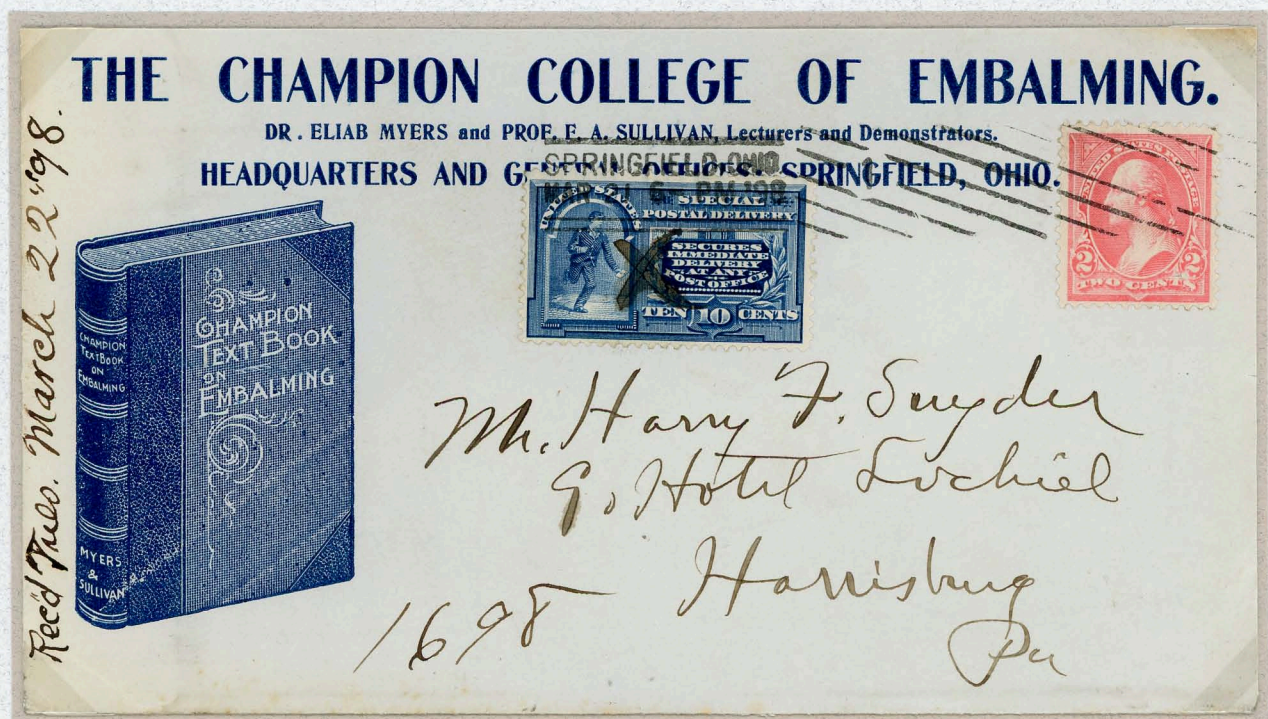 THE CHAMPION COLLEGE OF EMBALMING.
DR. ELIAB MYERS and PROF. F. A. SULLIVAN, Lecturers and Demonstrators.
HEADQUARTERS AND OFFICES: SPRINGFIELD, OHIO.
SPRINGFIELD, OHIO
MAR 6 PM '98
UNITED STATES
SPECIAL
POSTAL DELIVERY
SECURES
IMMEDIATE
DELIVERY
AT ANY
POST OFFICE
TEN 10 CENTS
X
UNITED STATES POSTAGE
2 2
TWO CENTS
CHAMPION
TEXT BOOK
ON
EMBALMING
CHAMPION
TEXT BOOK
ON
EMBALMING
MYERS
&
SULLIVAN
Rec'd Tues. March 22nd 98.
Mr. Harry F. Snyder
Hotel Lochiel
Harrisburg
Pa
1698